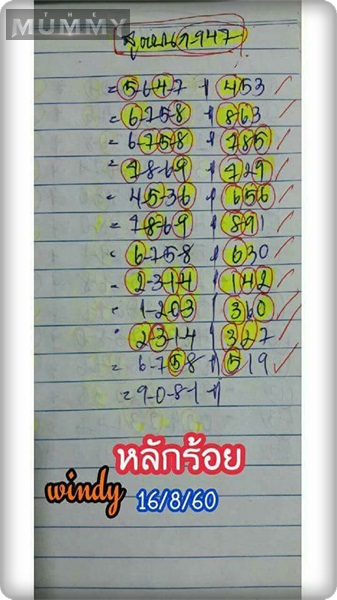 MUMMY
สูตรบน ก.947
= 5-6-4-7 // 453 /
= 6-7-5-8 // 863 /
= 6-7-5-8 // 785 /
= 7-8-6-9 // 729 /
= 4-5-3-6 // 656 /
= 7-8-6-9 // 891 /
= 6-7-5-8 // 630 /
= 2-3-1-4 // 142 /
= 1-2-0-3 / 360 /
= 2-3-1-4 / 327 /
= 6-7-5-8 // 519 /
= 9-0-8-1 //
หลักร้อย
windy 16/8/60